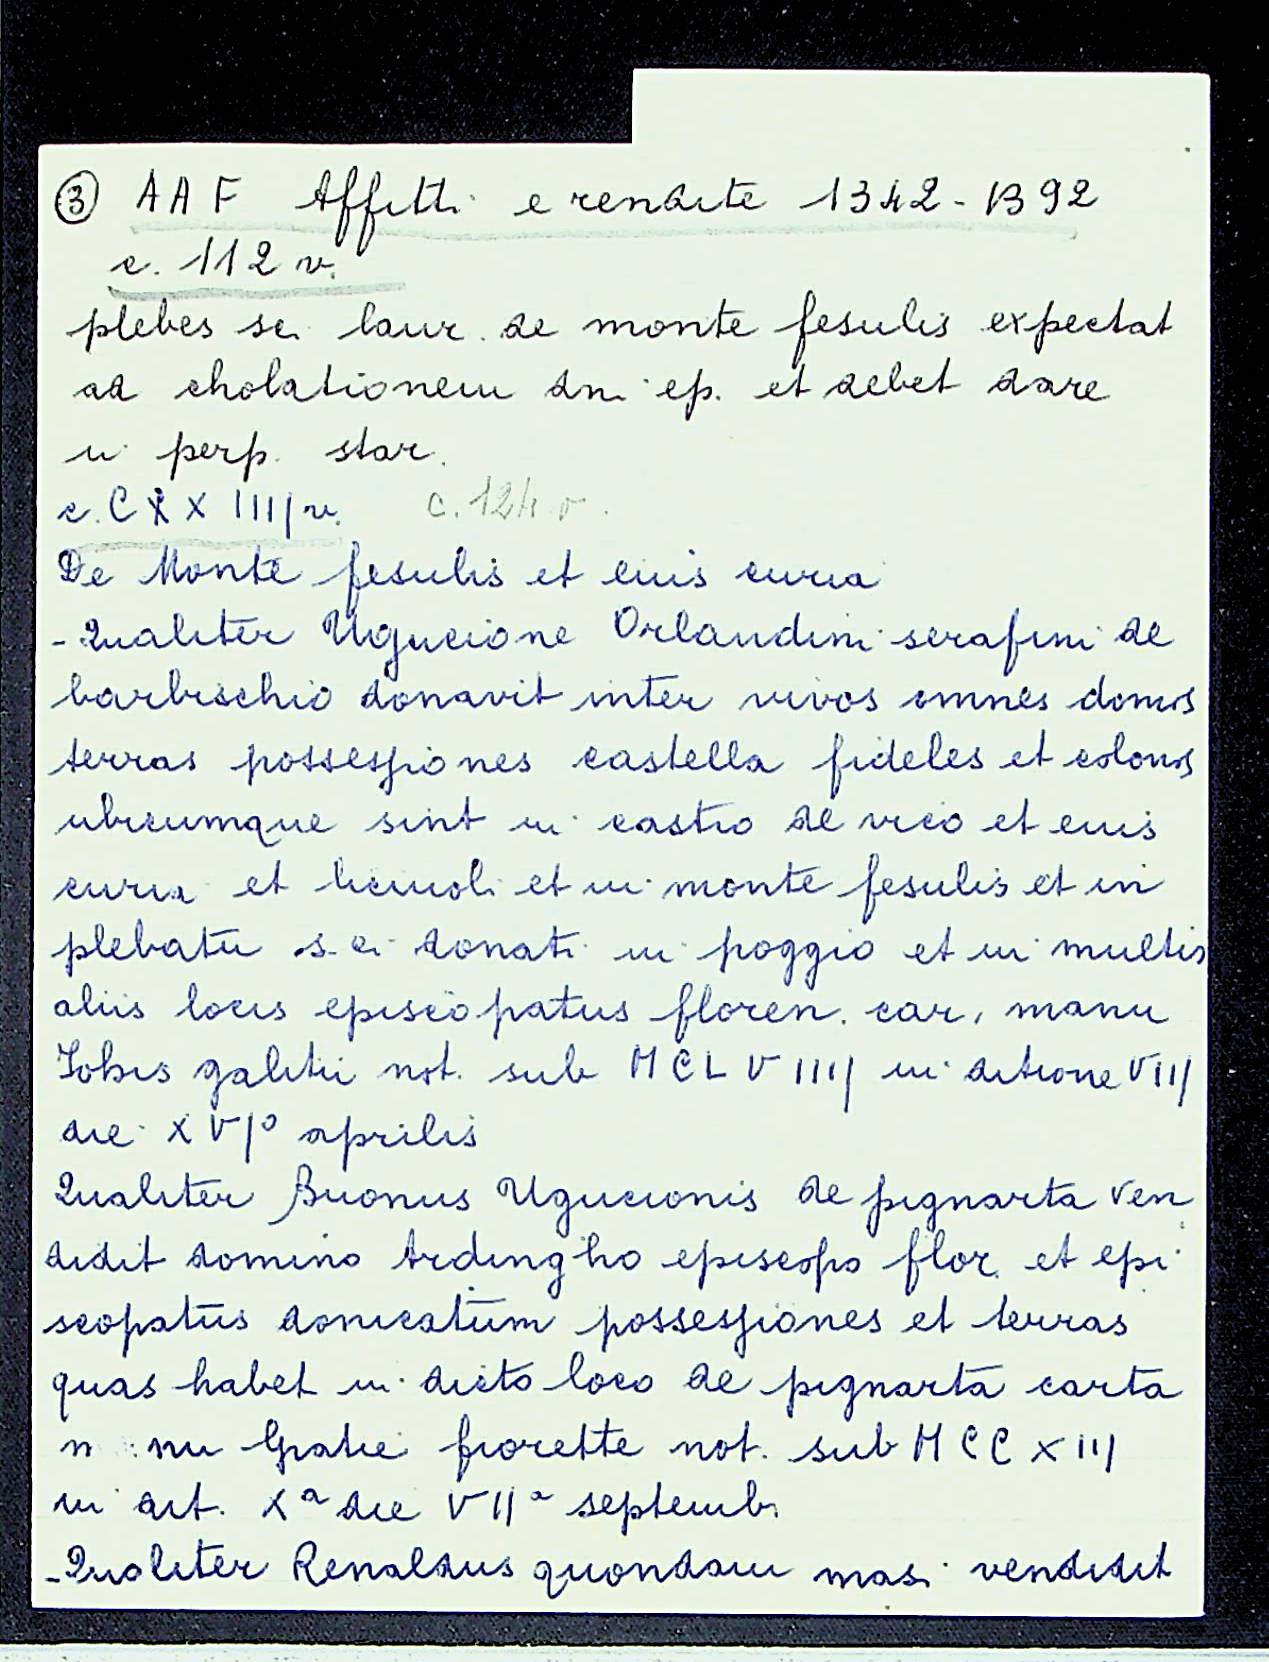 ③ AAF Affitti e rendite 1342-1392
c. 112 v.
plebes sci laur. de monte fesulis expectat
ad cholationem dni ep. et debet dare
in perp. star.
c. CXXIIIJ v. c. 124 v.
De Monte fesulis et eius curia
- Qualiter Ugucione Orlandini serafini de
barbischio donavit inter vivos omnes domos
terras possessiones castella fideles et colonos
ubicumque sint in castro de vico et eius
curia et in monte fesulis et in
plebatu sci donati in poggio et in multis
aliis locis episcopatus floren. car. manu
Johis galitii not. sub MCLVIIIJ in ditione VIIJ
die XVJº aprilis
Qualiter Buonus Ugucionis de pignarta ven
didit domino Ardingho episcopo flor. et epi
scopatus donicatum possessiones et terras
quas habet in dicto loco de pignarta carta
nu Gratie fiorette not. sub MCCXIIJ
in dit. Xª die VIJª septemb.
- Qualiter Renaldus quondam masi vendidit